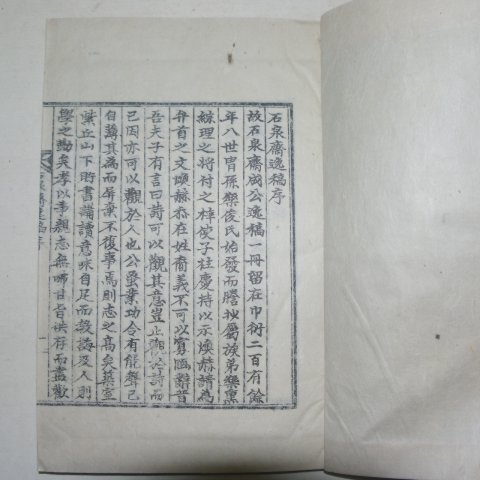 石泉齋逸稿序
故石泉齋成公逸稿一冊留在巾衍二百有餘
年八世胄孫樂俊氏始發而謄抄屬族弟樂熏
絲理之將付之梓使子柱慶持以示煥赫請爲
弁首之文煥赫忝在姓裔義不可以寡陋辭昔
吾夫子有言曰詩可以觀其意豈止觀於詩而
已因亦可以觀於人也公蚤業功令有能聲已
自 其爲而屛棄不復事焉則志之高矣築室
 丘山下貯書滿讀意味自足而 誘及人則
學之 矣孝以事親志無 甘旨 存而盡歡
 泉齋逸稿序